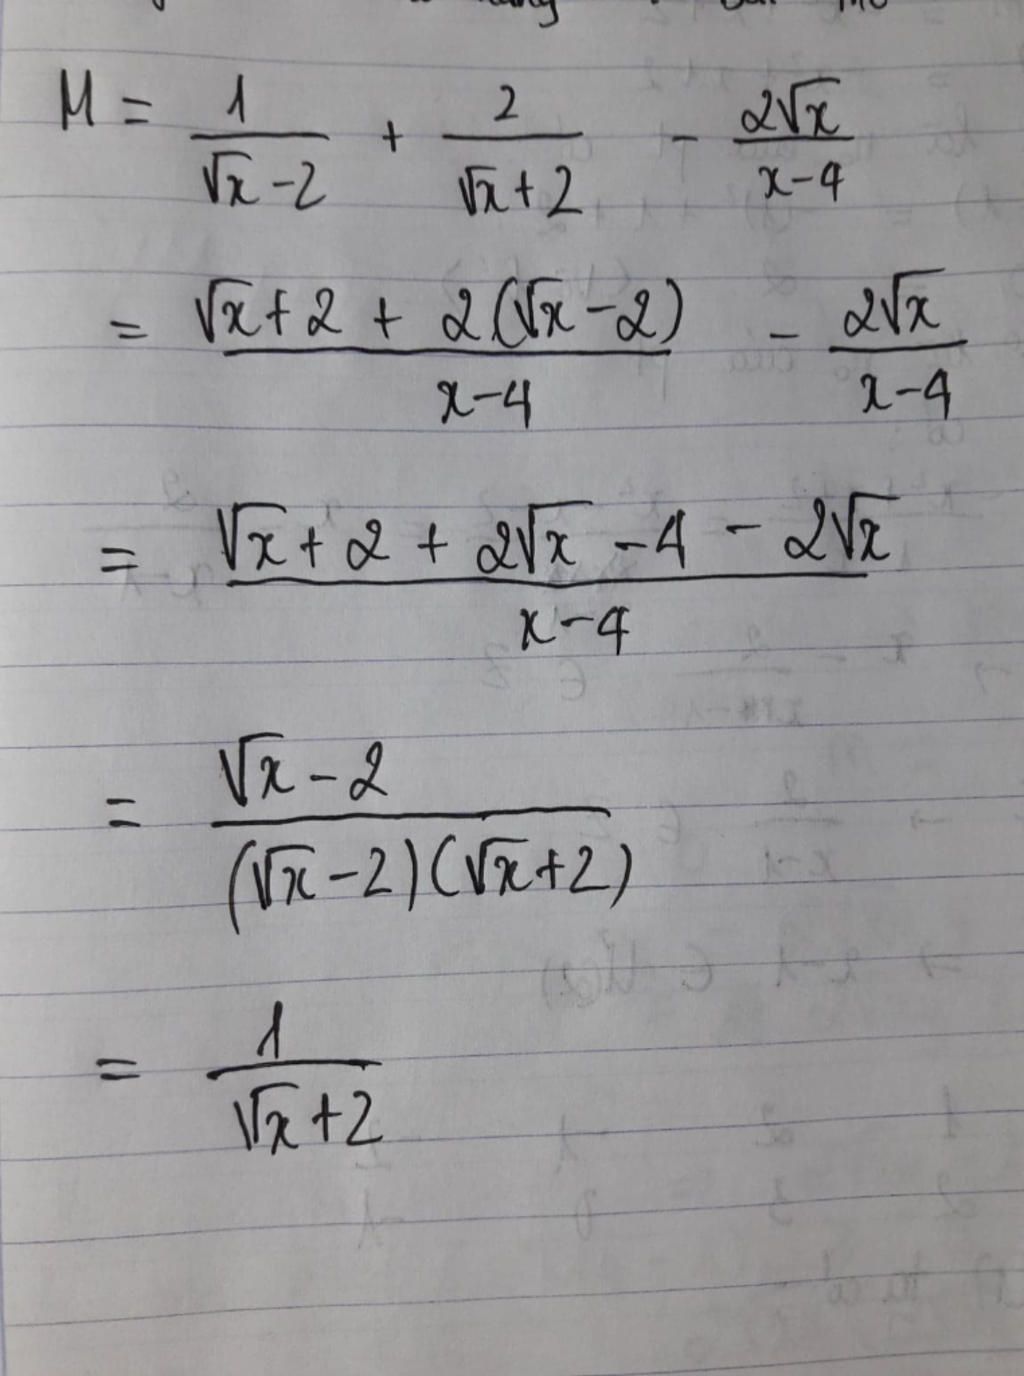 M = 1/(√x - 2) + 2/(√x + 2) - 2√x/(x - 4)
= (√x + 2 + 2(√x - 2))/(x - 4) - 2√x/(x - 4)
= (√x + 2 + 2√x - 4 - 2√x)/(x - 4)
= (√x - 2)/((√x - 2)(√x + 2))
= 1/(√x + 2)